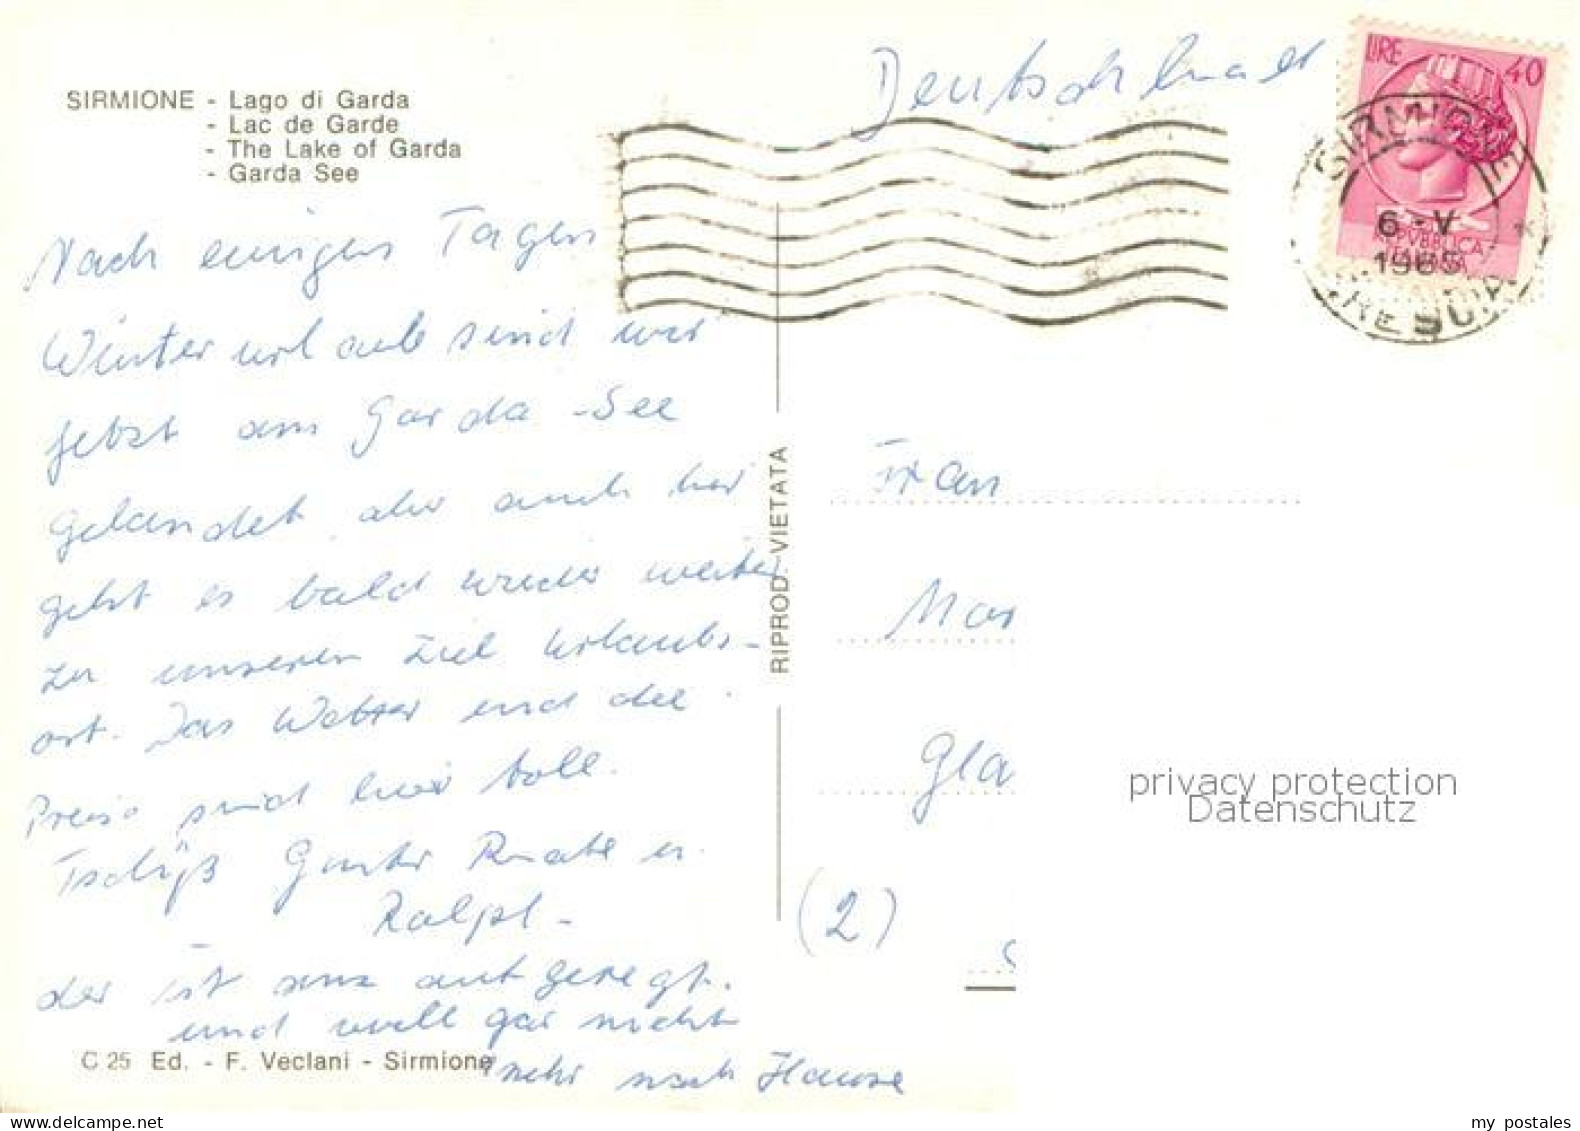 Deutschland
LIRE 40
SIRMIONE - Lago di Garda
- Lac de Garde
- The Lake of Garda
- Garda See
SIRMIONE
6-V
1965
REPVBBLICA
Nach einigen Tagen
Winterurlaub sind wir
jetzt am Garda-See
gelandet, aber auch hier
geht es bald wieder weiter
zu unseren Ziel Urlaubs-
ort. Das Wetter und die
Preise sind hier toll.
Tschüß Günter Renate u.
Ralph -
der ist ganz aufgeregt.
und will gar nicht
mehr nach Hause
C 25 Ed. - F. Veclani - Sirmione
RIPROD. VIETATA
Frau
Mar
Gla
(2)
privacy protection
Datenschutz
my postales